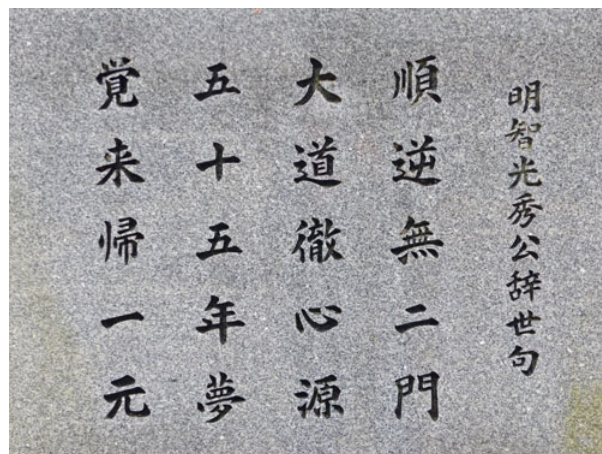 明智光秀公辞世句
順逆無二門
大道徹心源
五十五年夢
覚来帰一元